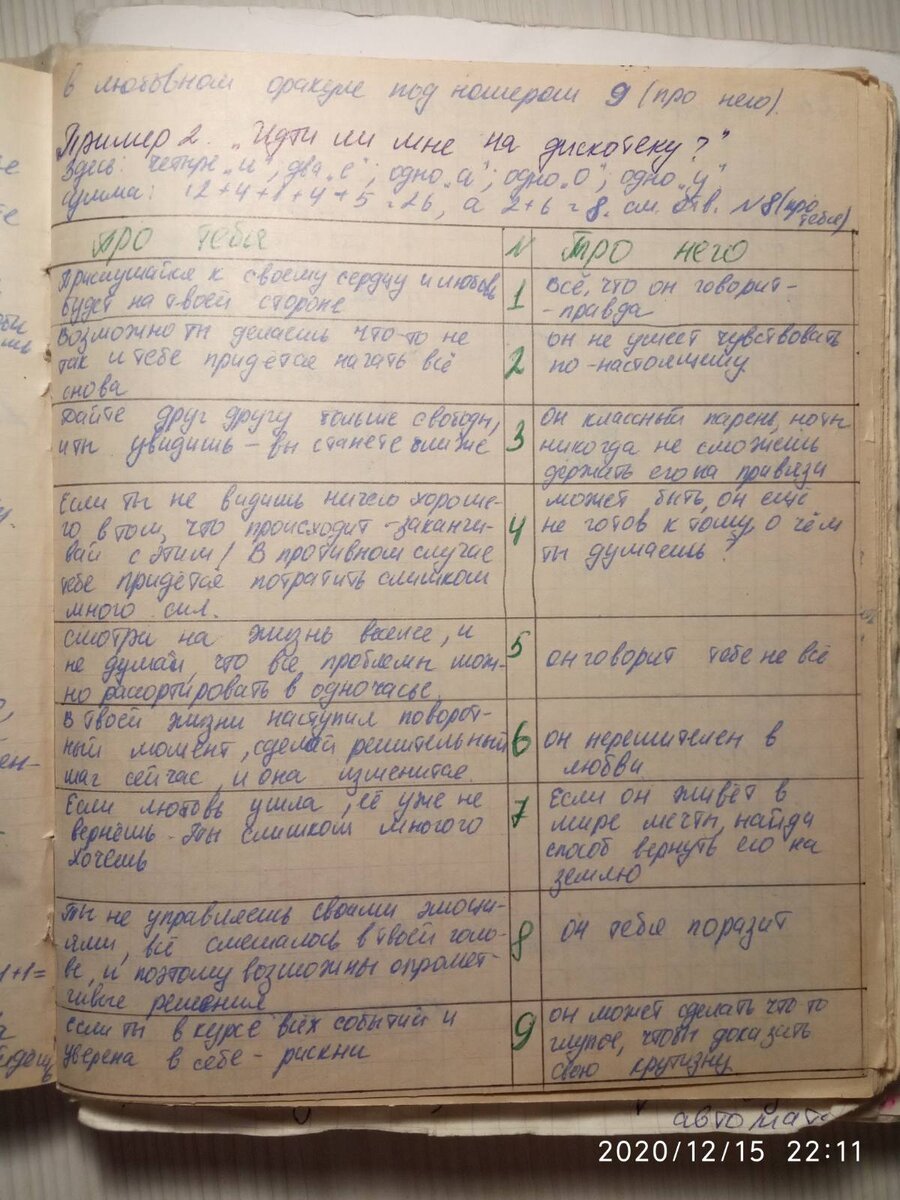 в любовном оракуле под номером 9 (про него).
Пример 2. „Идти ли мне на дискотеку?"
Здесь: четыре „и"; два „е"; одно „а"; одно „о"; одно „у"
сумма: 12+4+1+4+5=26, а 2+6=8. см. отв. №8 (про
тебя)
про тебя
N
про него
Прислушайся к своему сердцу и любовь
будет на твоей стороне
1
Всё, что он говорит-
-правда
Возможно ты делаешь что-то не
так и тебе придётся начать всё
снова
2
он не умеет чувствовать
по-настоящему
Дайте друг другу больше свободы,
и ты увидишь - вы станете ближе
3
Он классный парень, но ты
никогда не сможешь
держать его на привязи
Если ты не видишь ничего хороше-
го в том, что происходит - заканчи-
вай с этим! В противном случае
тебе придётся потратить слишком
много сил.
4
может быть, он ещё
не готов к тому, о чём
ты думаешь?
смотри на жизнь шире, и
не думай, что все проблемы мож-
но рассортировать в одночасье.
5
он говорит тебе не всё
В твоей жизни наступил поворот-
ный момент, сделай решительный
шаг сейчас, и она изменится.
6
он нерешителен в
любви
Если любовь ушла, её уже не
вернёшь. Ты слишком многого
хочешь
7
Если он живёт в
мире мечты, найди
способ вернуть его на
землю
Ты не управляешь своими эмоци-
ями, всё смешалось в твоей голо-
ве, и поэтому возможны опромет-
чивые решения
8
он тебя поразит
если ты в курсе всех событий и
уверена в себе - рискни
9
он может сделать что то
глупое, чтобы доказать
свою крутизну
1+1=
ен-
автомат
2020/12/15 22:11